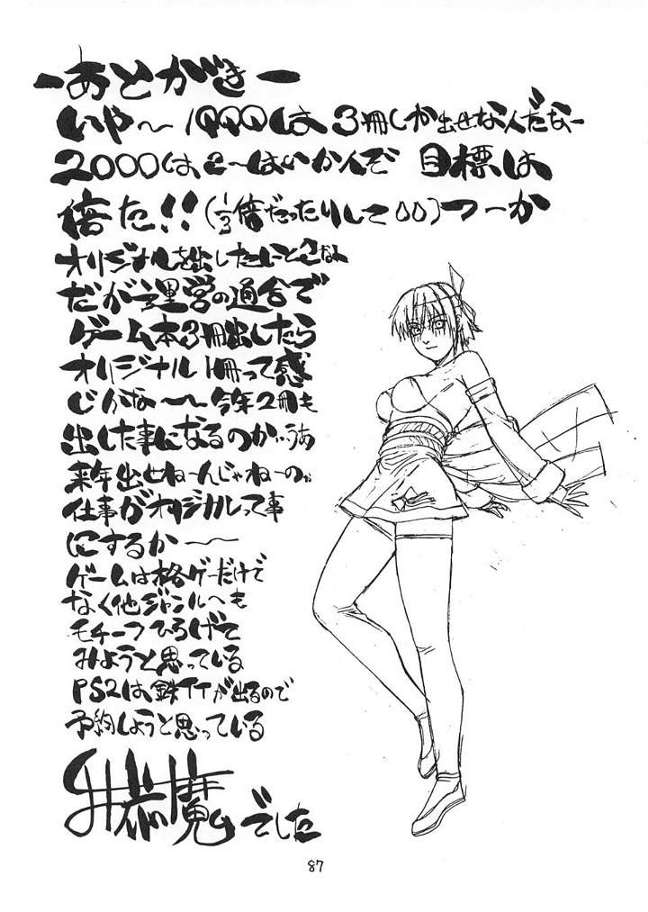 ーあとがきー
いや〜1999は3冊しか出せなんだなー
2000は、2〜はいかんぞ 目標は
倍だ!!(1/3倍だったりして00)つーか
オリジナルを出したーいとこだ
だが運営の都合で
ゲーム本3冊出したら
オリジナル1冊って感
じかな〜〜今年2冊も
出した事になるのか…うあ
来年出せねーんじゃねーのか
仕事がオリジナルって事
にするかー
ゲームは格ゲーだけで
なく他ジャンルへも
モチーフひろげて
みようと思っている
PS2は鉄TTが出るので
予約しようと思っている
魔でした
87